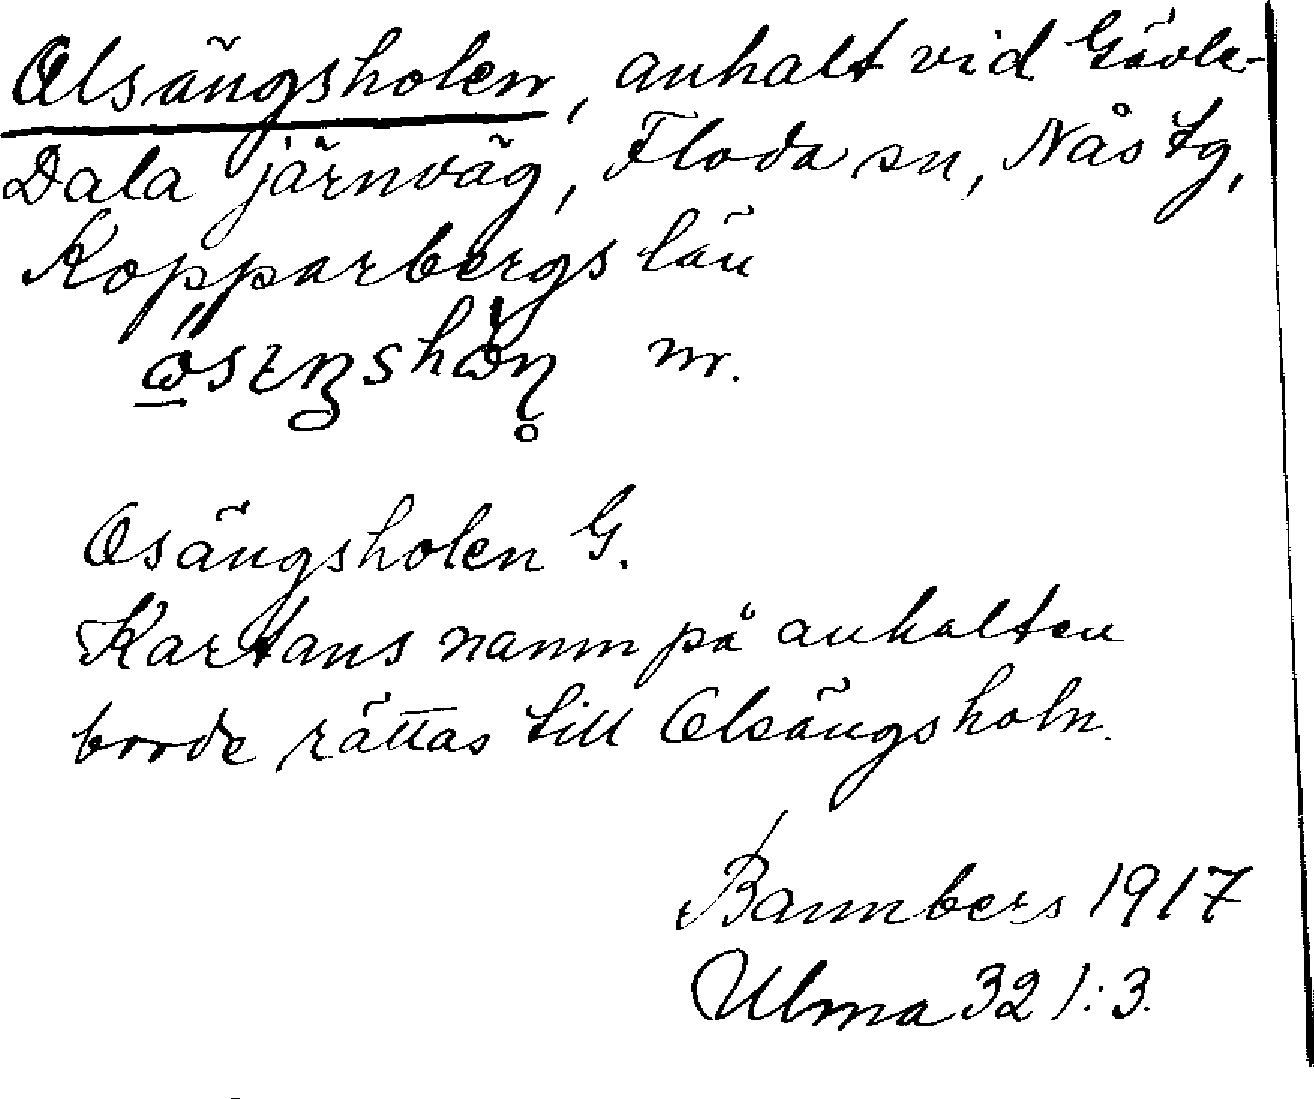 Olsängsholen, anhalt vid Gävle-
Dala järnväg, Floda sn, Nås tg,
Kopparbergs län
nr.
Osängsholen G.
Kartans namn på anhalten
borde rättas till Olsängsholn.
Bannbers 1917
Ulma 321:3.